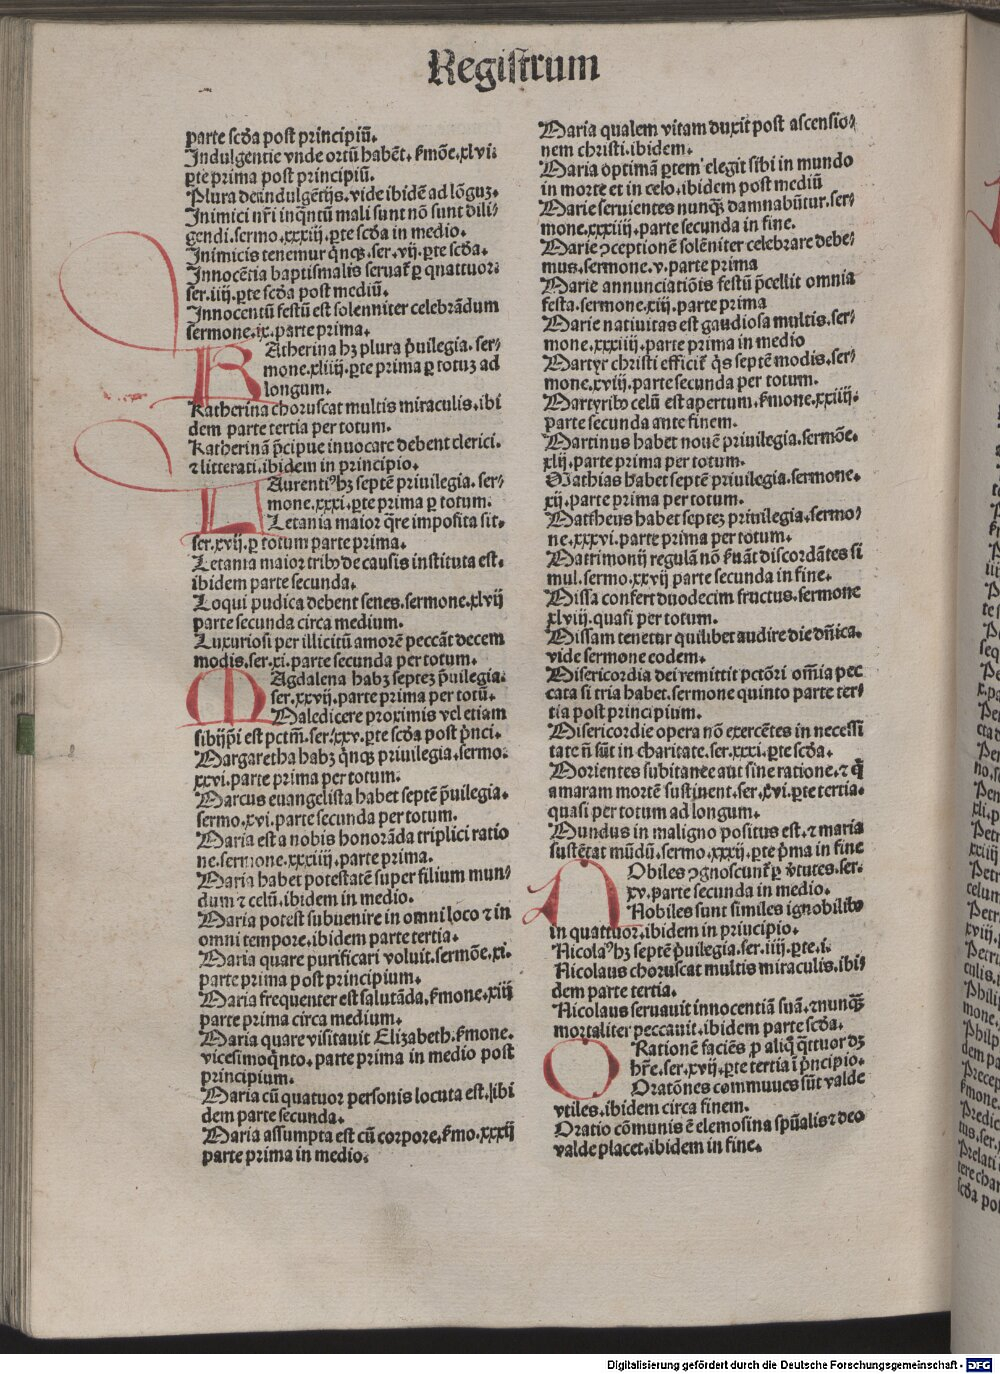 Registrum
parte scďa post principiū.
Indulgentie vnde ortū habēt. ẜmōe.xlvi.
ꝑte prima post principiū.
Plura deindulgētijs.vide ibidē ad lōguꝫ.
Inimici nr̄i inq̄ntū mali sunt nō sunt dili⸗
gendi.sermo.xxxiij.ꝑte scďa in medio.
Inimicis tenemur q̇nqꝫ.ser.vij.ꝑte scďa.
Innocētia baptismalis seruat᷑ ꝑ quattuor.
ser.iiij.ꝑte scďa post mediū.
Innocentū festū est solenniter celebrādum
sermone.ix.parte prima.
KAtherina hꝫ plura p̄uilegia.ser⸗
mone.xliiij.ꝑte prima ꝑ totuꝫ ad
longum.
Katherina choruscat multis miraculis.ibi
dem parte tertia per totum.
Katherinā p̄cipue inuocare debent clerici.
⁊ litterati.ibidem in principio.
LAurentiꝰ hꝫ septē priuilegia.ser⸗
mone.xxxi.ꝑte prima ꝑ totum.
Letania maior q̄re imposita sit.
ser.xvij.ꝑ totum parte prima.
Letania maior tribꝰ de causis instituta est.
ibidem parte secunda.
Loqui pudica debent senes.sermone.xlvij
parte secunda circa medium.
Luxuriosi per illicitū amorē peccāt decem
modis.ser.xi.parte secunda per totum.
MAgdalena habꝫ septeꝫ p̄uilegia.
ser.xxvij.parte prima per totū.
Maledicere proximis vel etiam
sibijp̄i est pctm̄.ser.xxv.ꝑte scďa post p̄nci.
Margaretha habꝫ q̇nqꝫ priuilegia.sermo.
xxvi.parte prima per totum.
Marcus euangelista habet septē p̄uilegia.
sermo.xvi.parte secunda per totum.
Maria est a nobis honorāda triplici ratio
ne.sermone.xxxiiij.parte prima.
Maria habet potestatē super filium mun⸗
dum ⁊ celū.ibidem in medio.
Maria potest subuenire in omni loco ⁊ in
omni tempore.ibidem parte tertia.
Maria quare purificari voluit.sermōe.xi.
parte prima post principium.
Maria frequenter est salutāda.ẜmone.xiij
parte prima circa medium.
Maria quare visitauit Elizabeth.ẜmone.
vicesimoq̇nto.parte prima in medio post
principium.
Maria cū quatuor personis locuta est.ibi
dem parte secunda.
Maria assumpta est cū corpore.ẜmo.xxxij
parte prima in medio.
Maria qualem vitam duxit post ascensio⸗
nem christi.ibidem.
Maria optimā ꝑtem elegit sibi in mundo
in morte et in celo.ibidem post mediū
Marie seruientes nunqꝫ damnabūtur.ser⸗
mone.xxxiiij.parte secunda in fine.
Marie ↄceptionē solēniter celebrare debe⸗
mus.sermone.v.parte prima
Marie annunciatiōis festū p̄cellit omnia
festa.sermone.xiij.parte prima
Marie natiuitas est gaudiosa multis.ser⸗
mone.xxxiij.parte prima in medio
Martyr christi efficit᷑ q̇s septē modis.ser⸗
mone.xviij.parte secunda per totum.
Martyribꝰ celū est apertum.ẜmone.xxiiij.
parte secunda ante finem.
Martinus habet nouē priuilegia.sermōe.
xlij.parte prima per totum.
Mathias habet septē priuilegia.sermone.
xij.parte prima per totum.
Mattheus habet septeꝫ priuilegia.sermo⸗
ne.xxxvi.parte prima per totum.
Matrimonij regulā nō ẜuāt discordātes si
mul.sermo.xxvij parte secunda in fine.
Missa confert duodecim fructus.sermone
xlviij.quasi per totum.
Missam tenetur quilibet audire die dn̄ica.
vide sermone eodem.
Misericordia dei remittit pctōri om̄ia pec
cata si tria habet.sermone quinto parte ter⸗
tia post principium.
Misericordie opera nō exercētes in necessi
tate n̄ sūt in charitate.ser.xxxi.ꝑte scďa.
Morientes subitanee aut sine ratione.⁊ q̄
amaram mortē sustinent.ser.xvi.ꝑte tertia.
quasi per totum ad longum.
Mundus in maligno positus est.⁊ maria
sustētat mūdū.sermo.xxxij.ꝑte p̄ma in fine
NObiles ↄgnoscunt᷑ ꝑ v̄tutes.ser.
xv.parte secunda in medio.
Nobiles sunt similes ignobilibꝰ
in quattuor.ibidem in priucipio.
Nicolaꝰ hꝫ septē p̄uilegia.ser.iiij.ꝑte.i.
Nicolaus choruscat multis miraculis.ibi⸗
dem parte tertia.
Nicolaus seruauit innocentiā suā.⁊ nunqꝫ
mortaliter peccauit.ibidem parte scďa.
ORationē faciēs ꝓ aliq̇ q̄ttuor dꝫ
hr̄e.ser.xvij.ꝑte tertia ī p̄ncipio.
Oratōnes commuues sūt valde
vtiles.ibidem circa finem.
Oratio cōmunis ē elemosina spūalis ⁊ deo
valde placet.ibidem in fine.
Digitalisierung gefördert durch die Deutsche Forschungsgemeinschaft - DFG